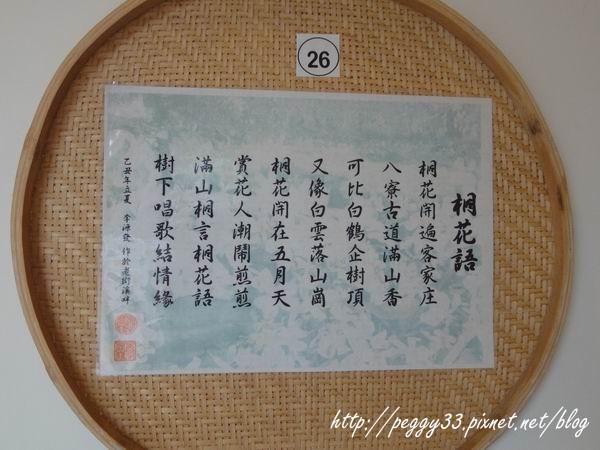 26
桐花語
桐花開遍客家庄
八寮古道滿山香
可比白鶴企樹頂
又像白雲落山崗
桐花開在五月天
賞花人潮鬧煎煎
滿山桐言桐花語
樹下唱歌結情緣
乙丑年立夏 李源發 作於老街溪畔
http://peggy33.pixnet.net/blog